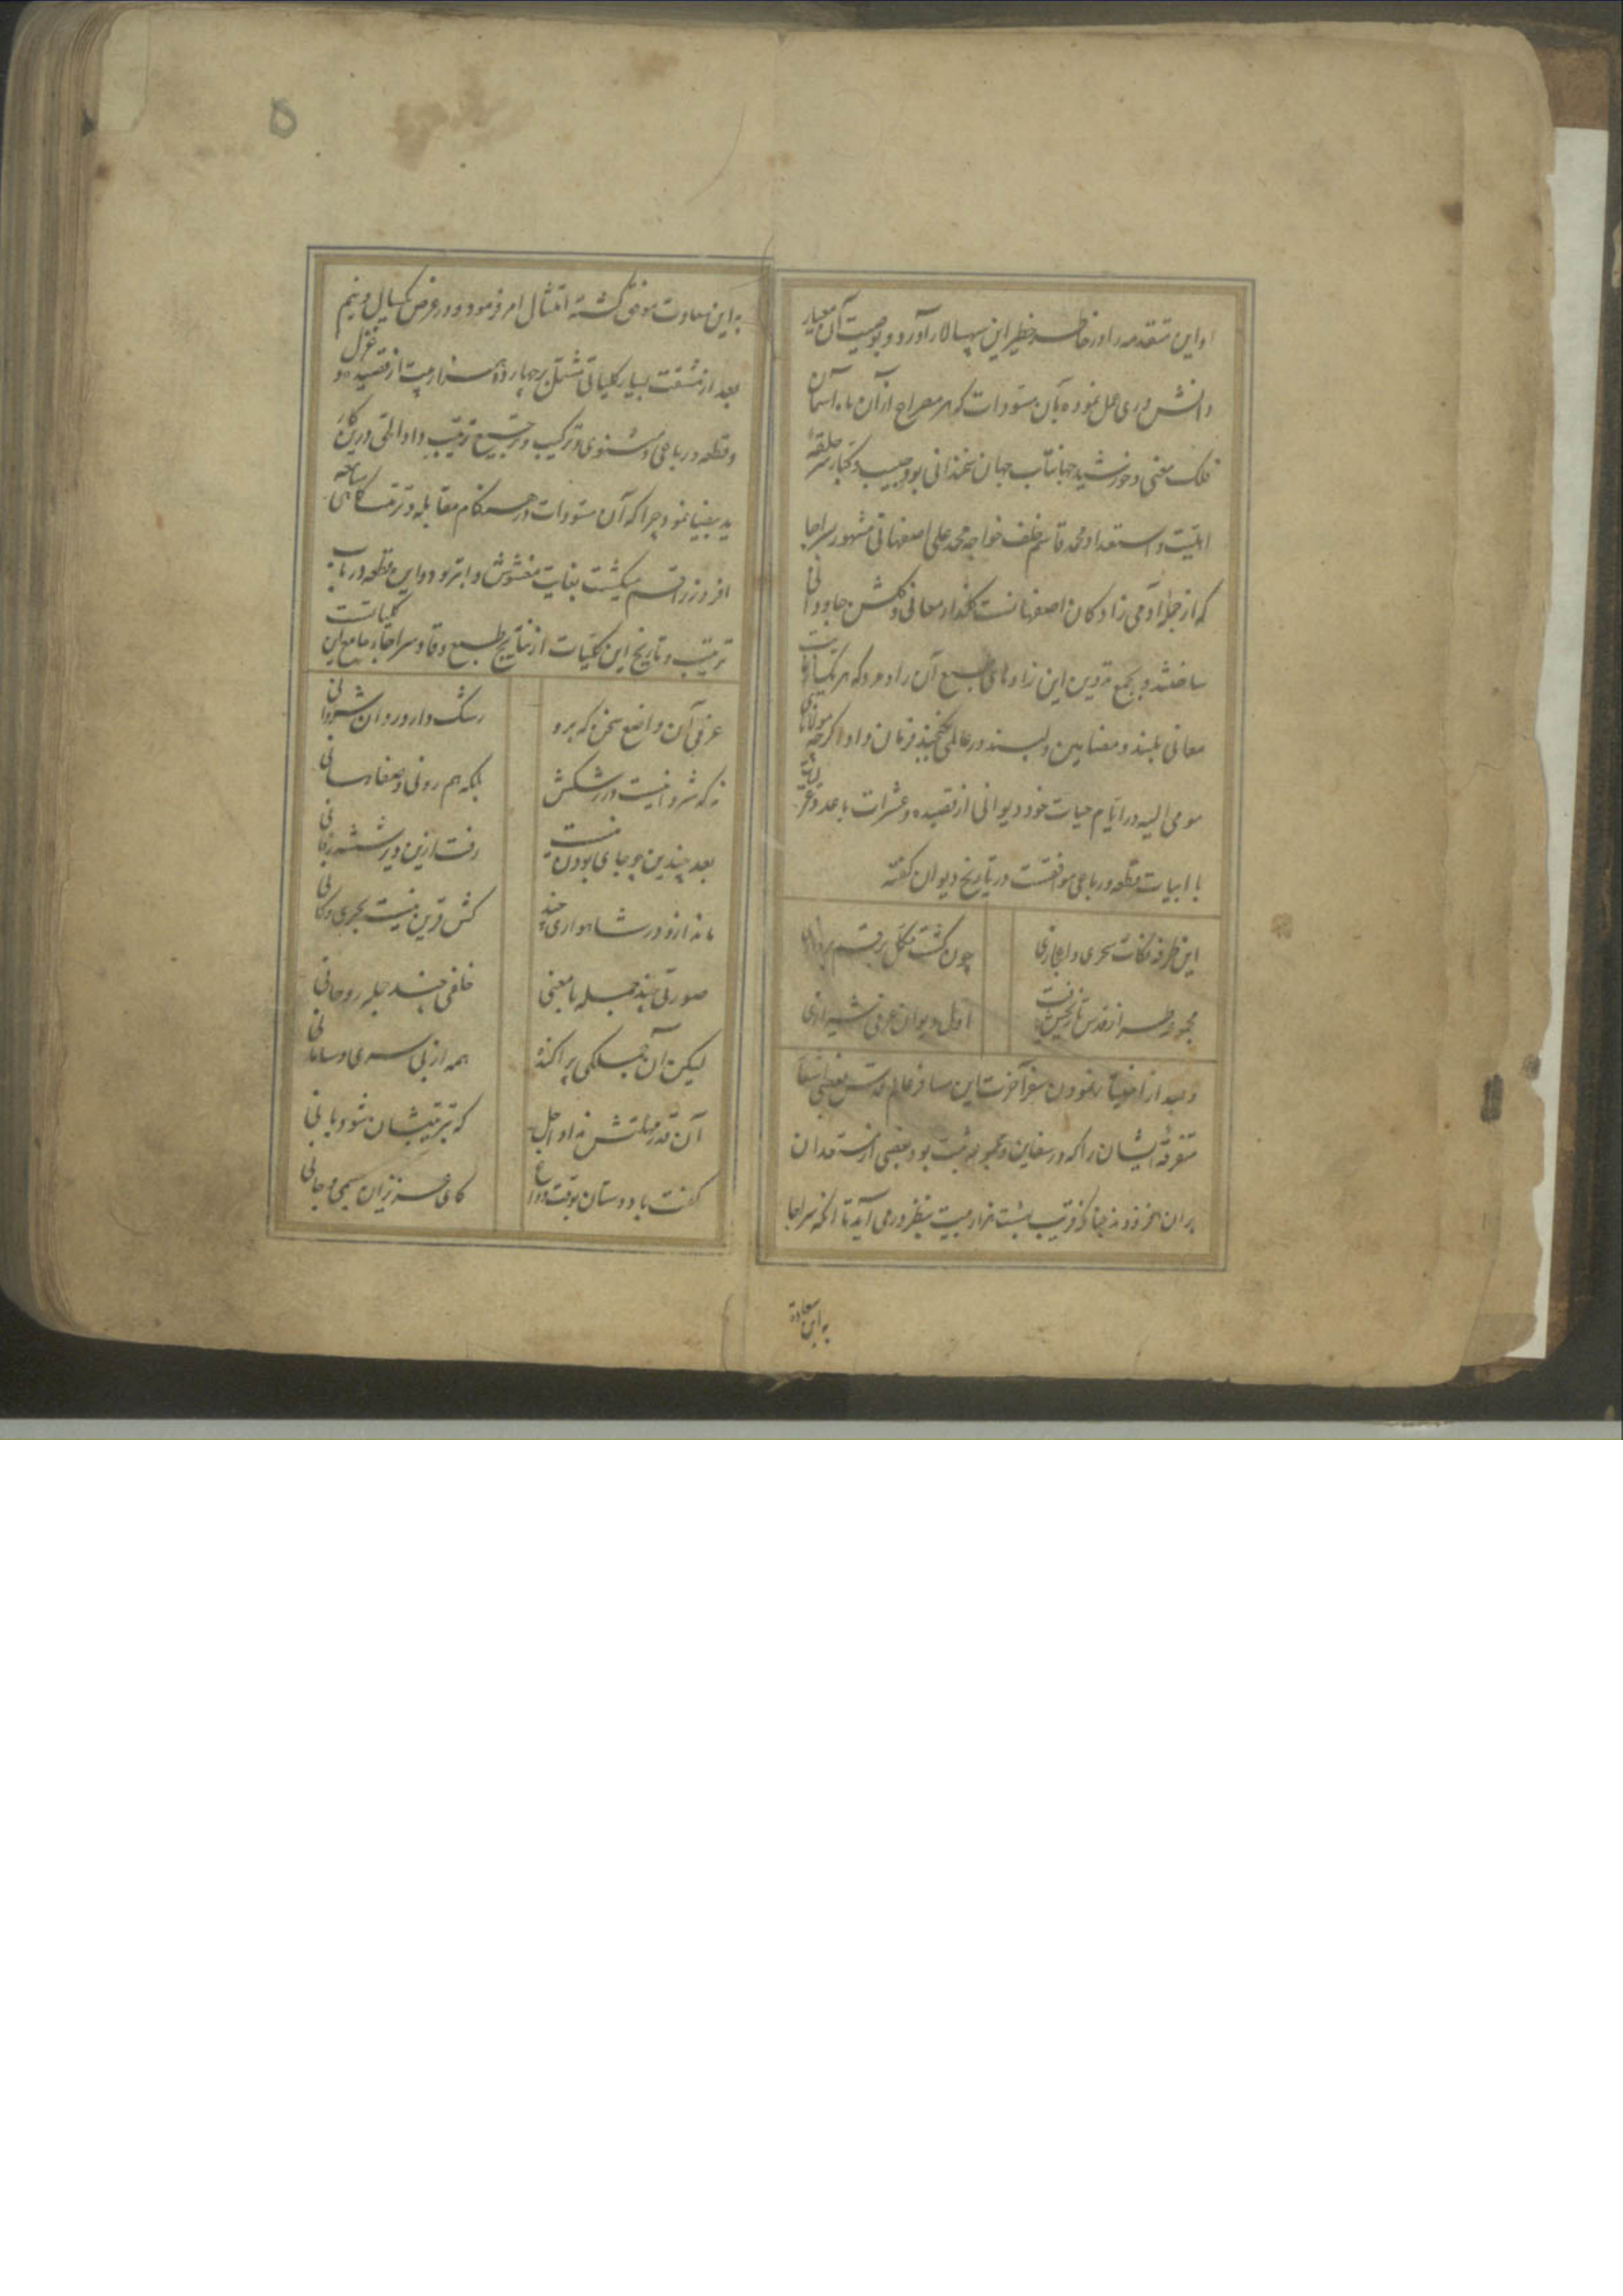 او این متقدمه را در خاطر خطیر این سپهسالار آورد و بوصیت آن معیار
دانش وری عمل نموده بآن مسودات که هر مصراع از آن ماه آسمان
فلک معنی و خورشید جهانتاب جهان سخندانی بود چسبید و کبار سر حلقهٔ
اهلیت و استعداد محمد قاسم خلف خواجه محمد علی اصفهانی مشهور بسراجا
که از جملهٔ آدمی زادگان اصفهانست گلزار معانی و گلشن جاودانی
ساختند و بجمع و تدوین این زادهای طبع آن راد مرد که هر یک بیات
معانی بلند و مضامین دلپسند در عالمی نگنجیدند فرمان داد اگرچه مولانای
مومی الیه در ایام حیات خود دیوانی از قصیده و عشرات با عدد غزلیات
با ابیات قطعه و رباعی موافقست در تاریخ دیوان گفته
این طرفه نکات سحری و اعجازی
چون گشت مکمل برقم پردازی
مجموعه طراز قدس تاریخش یافت
اول دیوان عرفی شیرازی
و بعد از اختیار نمودن سفر آخرت این مسافر عالم قدس بعضی اشعار
متفرقه ایشان را که در سفاین و مجموعه ثبت بود بعضی از مستعدان
بران افزودند چنانکه قریب بشت هزار بیت بنظر در می آید تا آنکه سراجا
به این سعادة
۵
به این سعادت موفق گشته امتثال امر فرمود و در عرض یکسال و نیم
بعد از مشقت بسیار کلیاتی مشتمل بر چهارده هزار بیت از قصیده و غزل
و قطعه و رباعی و مثنوی و ترکیب و ترجیع ترتیب داد الحق درین کار
ید بیضا نمود چرا که آن مسودات در هنگام مقابله و ترتیب سامعه
افروز راقم میگشت بغایت مغشوش و ابتر بود و این قطعه در باب
ترتیب و تاریخ این کلیات از نتایج طبع وقاد سراجا جامع این کلیاتست
عرفی آن واضع سخن که برو
رشک دارد روان شروانی
نه که شروانیست در رشکش
بلکه هم رونی و صفاهانی
بعد چندین چو جای بودن نیست
رفت ازین دیر ششدر فانی
ماند ازو در شاهواری چند
کش قرین نیست بحری و کانی
صورتی چند جمله با معنی
خلفی چند جمله روحانی
لیکن آن جملگی پراکنده
همه از بی سری و سامانی
آن قدر مهلتش نداد اجل
که بترتیبشان شود بانی
گفت با دوستان بوقت وداع
کای عزیزان جسمی و جانی